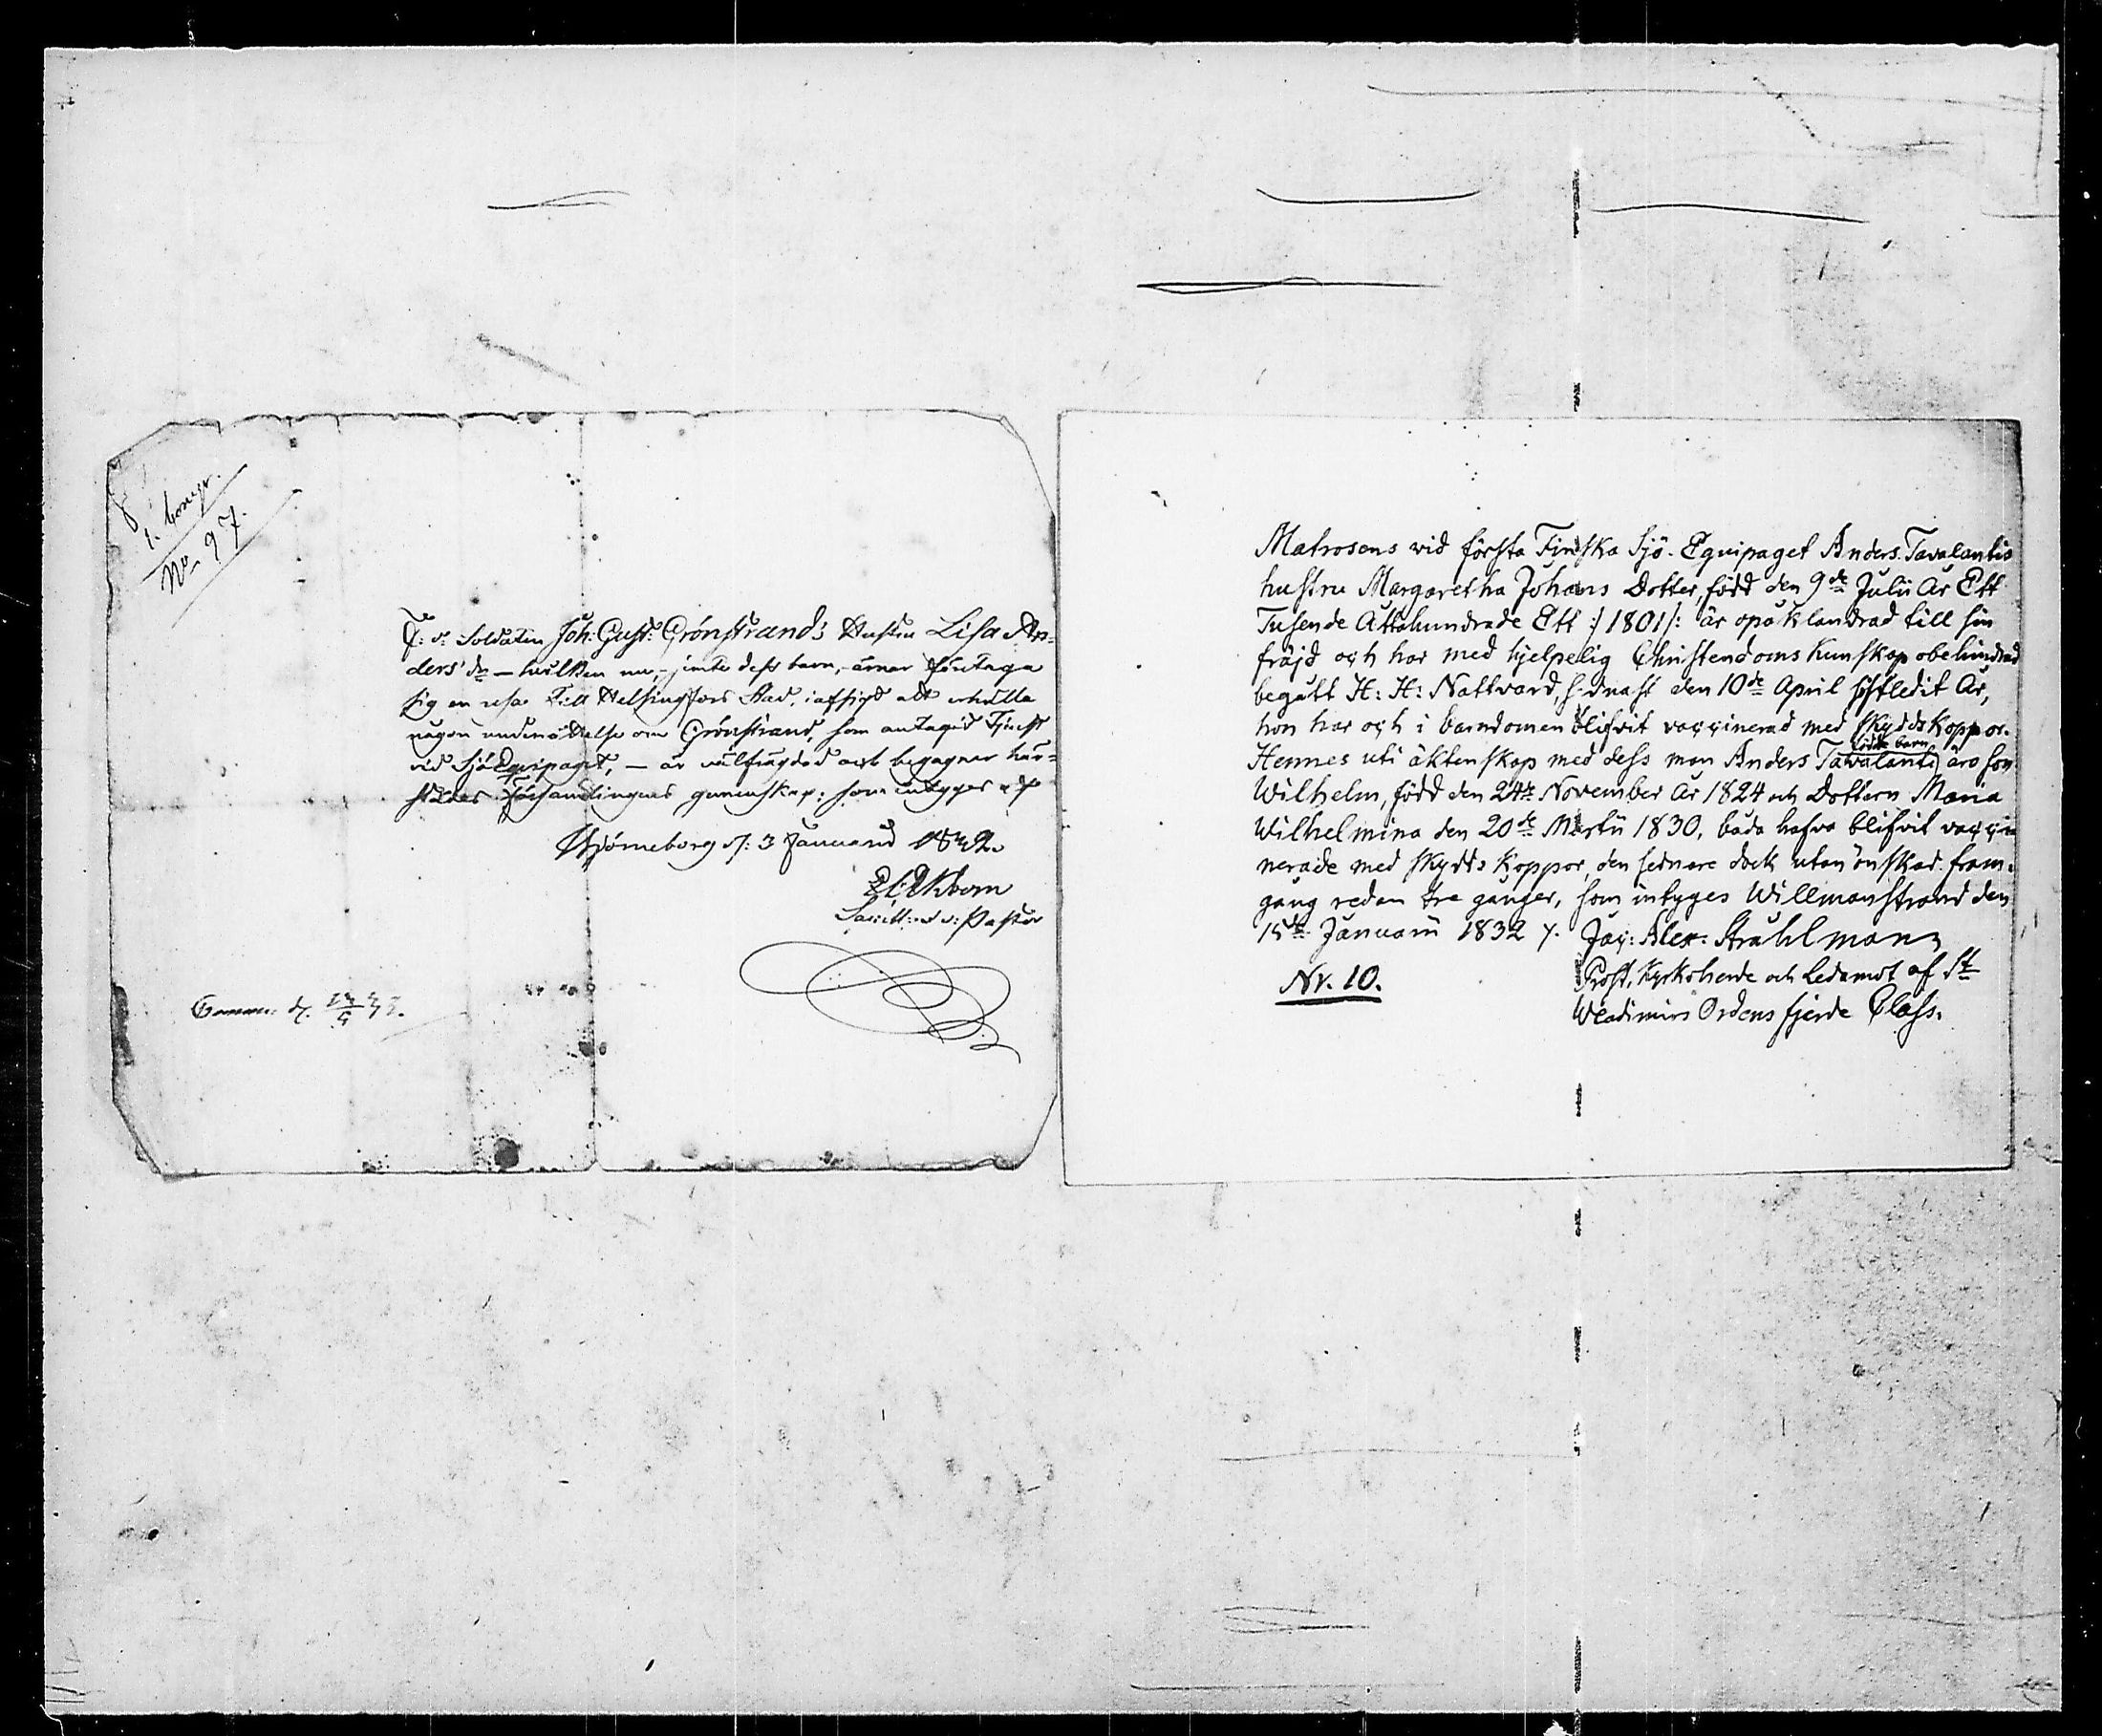 1. Comp.
No 97.
F: d: Soldaten Joh: Gust: Grönstrand's Hustru Lisa An-
ders'dr – hvilken nu, – jemte dess barn, – ärnar företaga
sig en resa till Helsingfors Stad, i afsigt att erhålla
någon underrättelse om Grönstrand, som antagit tjenst
vid SjöEquipaget, – är välfrägdad och begagnar här-
städes Församlingens gemenskap: som intygas af
Björneborg d: 3 Januarii 1832.
Ekbom
v: Pastor
Matrosens vid första Finska Sjö-Equipaget Anders Tavalantis
hustru Margaretha Johans Dotter, född den 9de Julii År Ett
Tusende Åttahundrade Ett :/ 1801 /: är opåklandrad till sin
fräjd och har med hjelpelig Christendoms kunskap obehindrad
begått H: H: Nattvard, sednast den 10de April sistledit År,
hon har och i barndomen blifvit vaccinerad med skyddskoppor.
Hennes uti äktenskap med dess man Anders Tavalanti födde barn äro son
Wilhelm, född den 24de November År 1824 och Dottern Maria
Wilhelmina den 20de Martii 1830, båda hafva blifvit vacci
nerade med skydds koppor, den sednare dock utan önskad fram-
gång redan tre gånger, som intyges Willmanstrand den
15de Januarii 1832 Jac: Alex: Stråhlman
Prost, Kyrkoherde och Ledamot af St
Wladimirs Ordens fjerde Class.
Nr. 10.